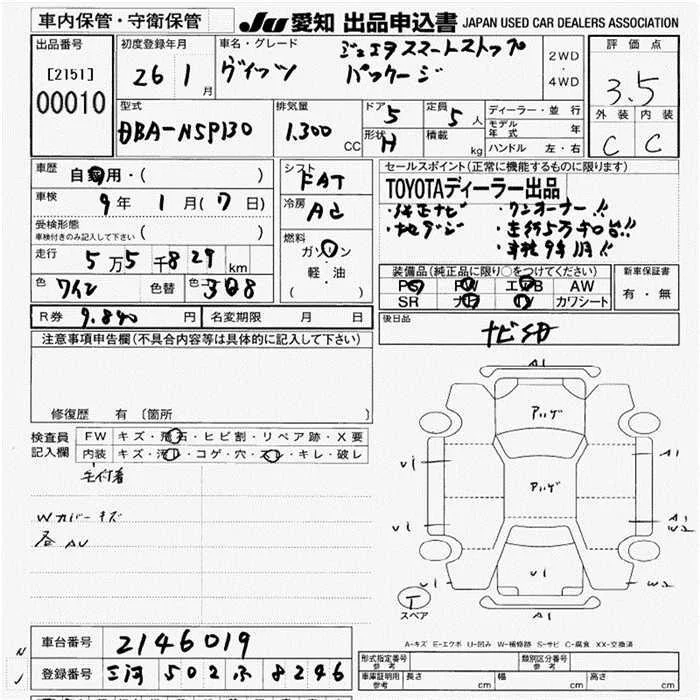 車内保管・守衛保管
JU 愛知 出品申込書 JAPAN USED CAR DEALERS ASSOCIATION
出品番号
[2151]
00010
初度登録年月
26 1 月
車名・グレード
ジュエラ スマートストップ
ヴィッツ パッケージ
2WD
・
4WD
評価点
3.5
外装 内装
C C
型式
DBA-NSP130
排気量
1.300 CC
ドア 5
形状 H
定員 5 人
積載 kg
ディーラー・並行
モデル年式 年
ハンドル 左・右
車歴
自家用・( )
車検
9年 1月(7日)
受検形態
車検付きのみ記入して下さい ( )
走行
5万5千829km
色 ワイン 色替 色コード 3Q8
シフト
FAT
冷房
AC
燃料
ガソリン
軽・油
( )
セールスポイント(正常に機能するものに限ります)
TOYOTAディーラー出品
・純正ナビ ・ワンオーナー!!
・地デジ ・走行5万キロ台!!
・車検9年1月!!
装備品(純正品に限り○をつけてください)
PS PW エアB AW
SR ナビ TV カワシート
新車保証書
有・無
R券 9.840 円 名変期限 月 日
後日品
ナビSD
注意事項申告欄(不具合内容等は具体的に記入して下さい)
修復歴 有 〔箇所 〕
検査員
記入欄
FW キズ・飛石・ヒビ割・リペア跡・X要
内装 キズ・汚レ・コゲ・穴・スレ・キレ・破レ
毛付着
Wカバーキズ
A1
U1
A1
U1
A1
W2
U1
U1
W2
A1
T
スペア
A-キズ E-エクボ U-凹み W-補修跡 S-サビ C-腐食 XX-交換済
車台番号 2146019
登録番号 三河 502 ふ 8246
形式指定番号
参考
類別区分番号
参考
車庫証明用
参考
長さ cm 幅 cm 高さ cm